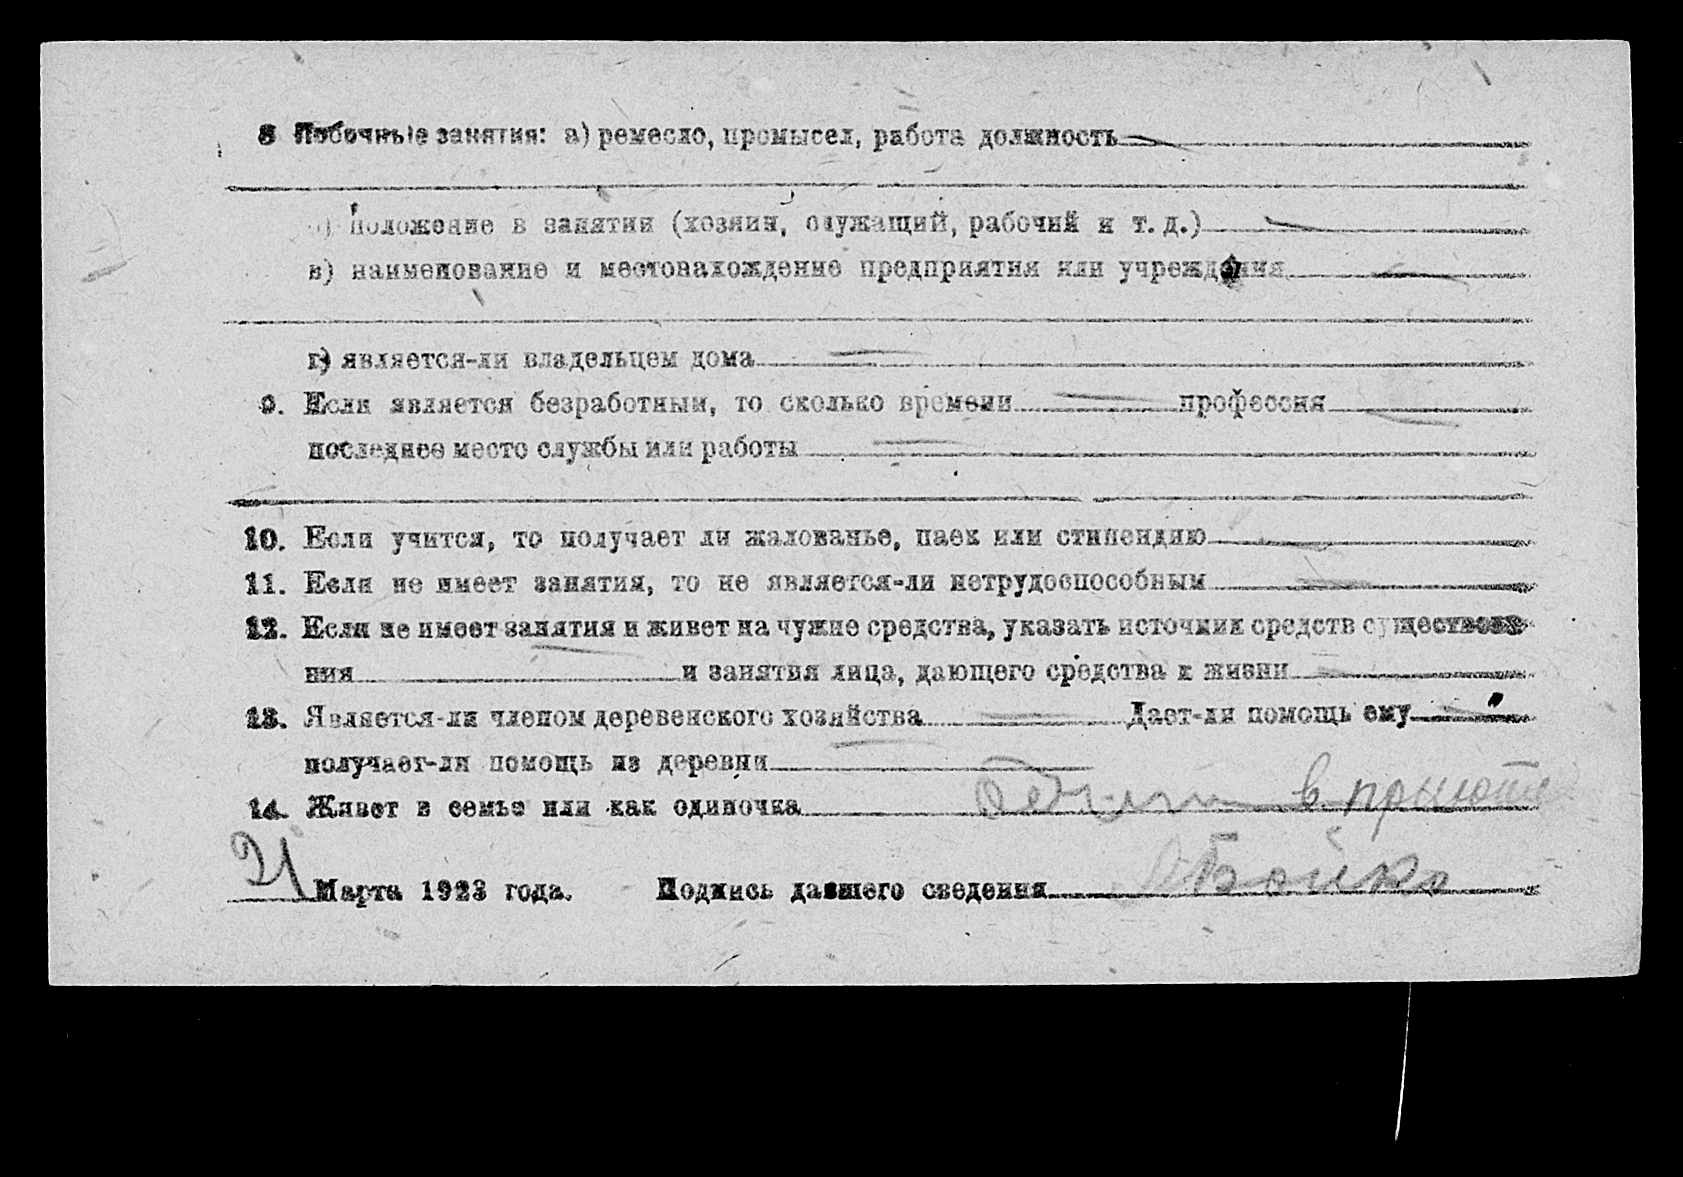 8 Побочные занятия: а) ремесло, промысел, работа должность
б) положение в занятии (хозяин, служащий, рабочий и т. д.)
в) наименование и местонахождение предприятия или учреждения
г) является-ли владельцем дома
9. Если является безработным, то сколько времени профессия
последнее место службы или работы
10. Если учится, то получает ли жалованье, паек или стипендию
11. Если не имеет занятия, то не является-ли нетрудоспособным
12. Если не имеет занятия и живет на чужие средства, указать источник средств существова-
ния и занятия лица, дающего средства к жизни
13. Является-ли членом деревенского хозяйства Дает-ли помощь ему
получает-ли помощь из деревни
14. Живет в семье или как одиночка в приюте
21 Марта 1923 года. Подпись давшего сведения Бойко